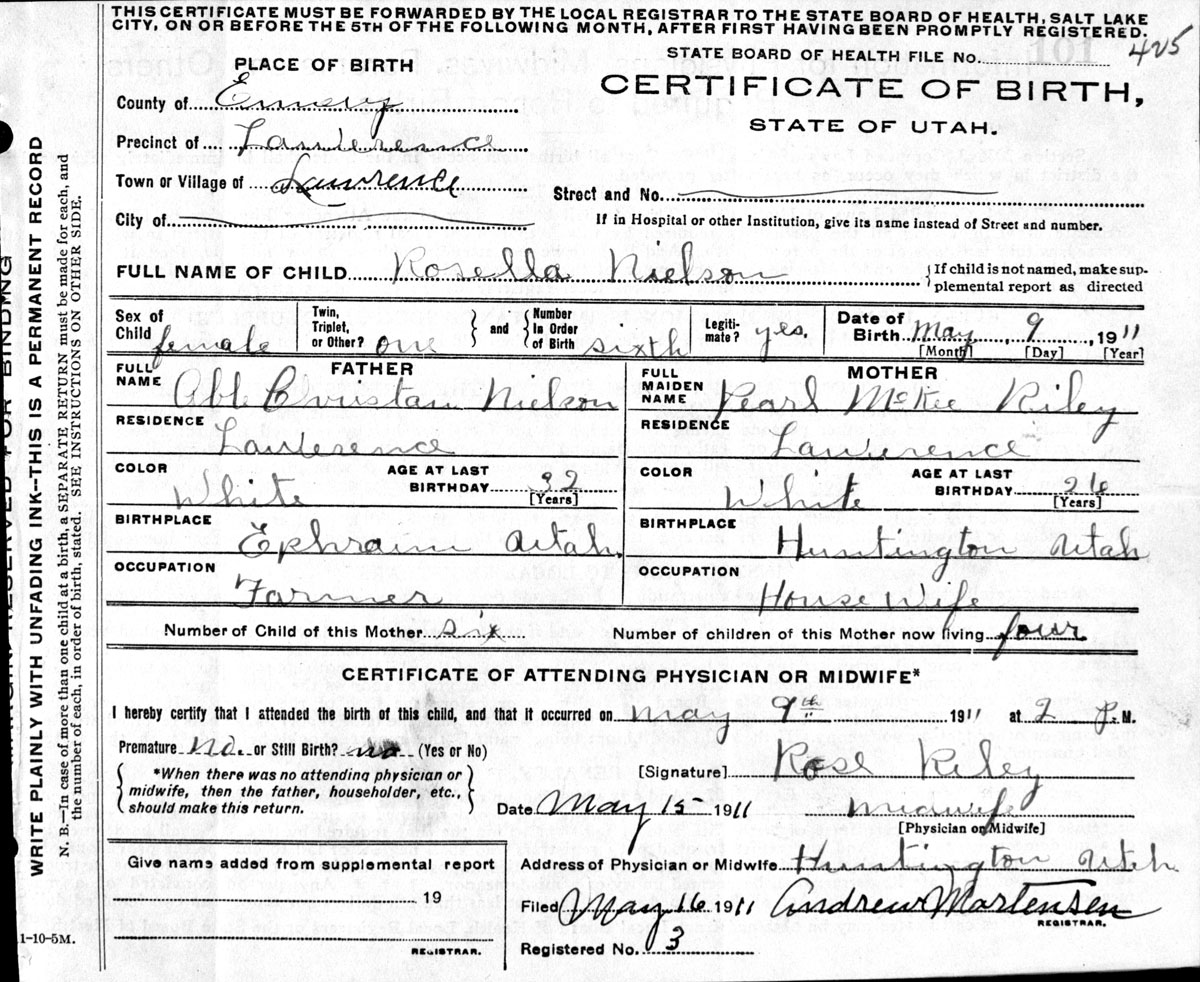 THIS CERTIFICATE MUST BE FORWARDED BY THE LOCAL REGISTRAR TO THE STATE BOARD OF HEALTH, SALT LAKE
CITY, ON OR BEFORE THE 5TH OF THE FOLLOWING MONTH, AFTER FIRST HAVING BEEN PROMPTLY REGISTERED.
STATE BOARD OF HEALTH FILE No. 101 425
PLACE OF BIRTH
CERTIFICATE OF BIRTH,
STATE OF UTAH.
County of Emery
Precinct of Lawerence
Town or Village of Lawrence
Street and No.
City of
If in Hospital or other Institution, give its name instead of Street and number.
FULL NAME OF CHILD Rosella Nielson
If child is not named, make sup-
plemental report as directed
Sex of Child female
Twin, Triplet, or Other? one
and
Number in Order of Birth sixth
Legiti-mate? yes,
Date of Birth May, 9, 1911
[Month] [Day] [Year]
FATHER
FULL NAME Abb Christian Nielson
RESIDENCE Lawerence
COLOR White
AGE AT LAST BIRTHDAY 32 [Years]
BIRTHPLACE Ephraim Utah.
OCCUPATION Farmer
MOTHER
FULL MAIDEN NAME Pearl McKee Riley
RESIDENCE Lawerence
COLOR White
AGE AT LAST BIRTHDAY 26 [Years]
BIRTHPLACE Huntington Utah
OCCUPATION House Wife
Number of Child of this Mother six
Number of children of this Mother now living four
CERTIFICATE OF ATTENDING PHYSICIAN OR MIDWIFE*
I hereby certify that I attended the birth of this child, and that it occurred on May 9th 1911 at 2 P.M.
Premature no. or Still Birth? no (Yes or No)
*When there was no attending physician or
midwife, then the father, householder, etc.,
should make this return.
[Signature] Rose Riley
Date May 15 1911 Midwife
[Physician or Midwife]
Give name added from supplemental report
19
REGISTRAR.
Address of Physician or Midwife Huntington Utah
Filed May 16 1911 Andrew Mortensen
REGISTRAR.
Registered No. 3
1-10-5M.
MARGIN RESERVED FOR BINDING
WRITE PLAINLY WITH UNFADING INK--THIS IS A PERMANENT RECORD
N. B.—In case of more than one child at a birth, a SEPARATE RETURN must be made for each, and
the number of each, in order of birth, stated. SEE INSTRUCTIONS ON OTHER SIDE.